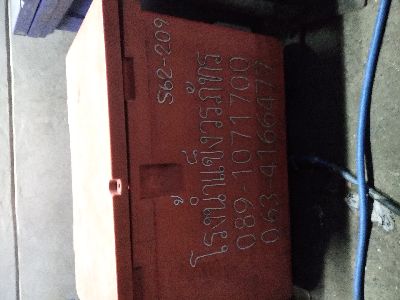 S62-209
โรงน้ำแข็งวรภัทร
089-1071700
063-4166477